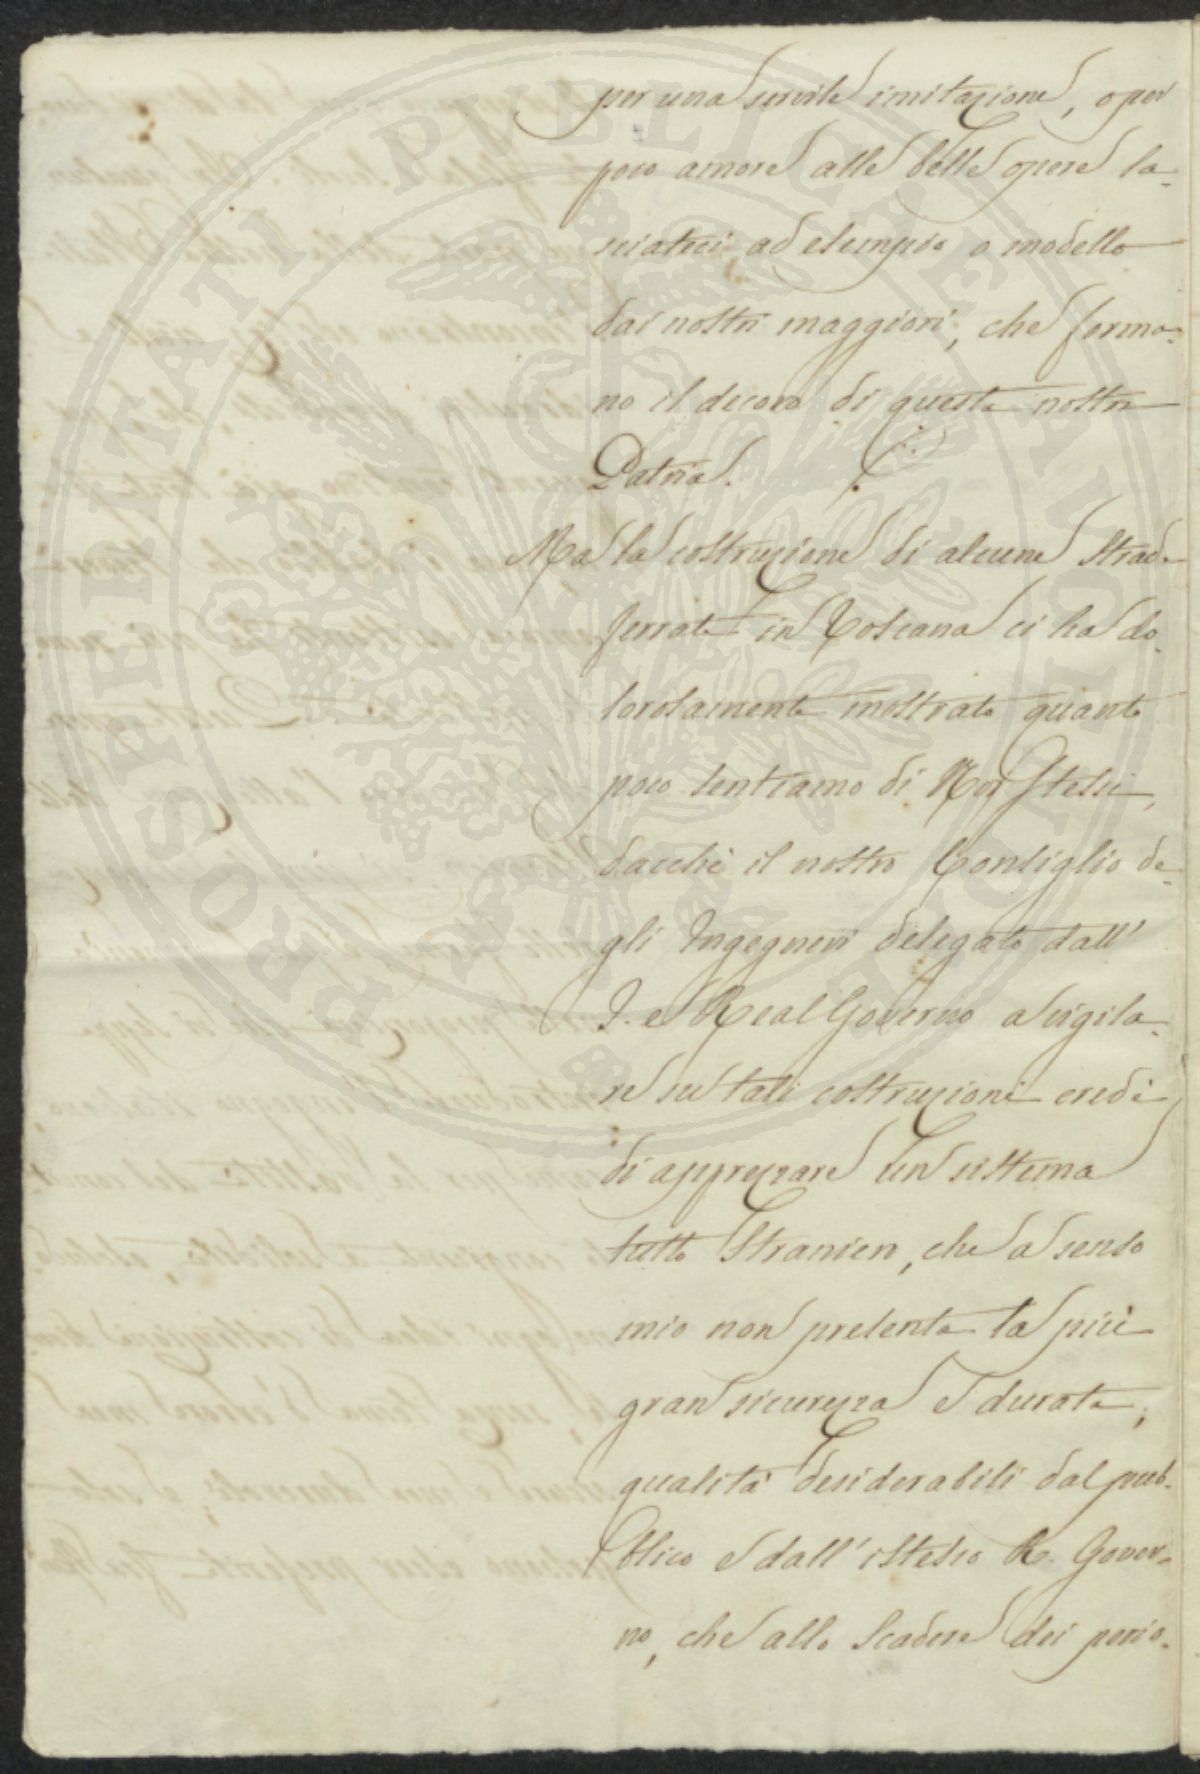 per una servile imitazione, o per
poco amore alle belle opere la-
sciateci ad esempio o modello
dai nostri maggiori, che forma-
no il decoro di questa nostra
Patria.
Ma la costruzione di alcune Strade
ferrate in Toscana ci ha do-
lorosamente mostrato quanto
poco sentiamo di Noi Stessi,
dacchè il nostro Consiglio de-
gli Ingegneri delegato dall'
I. e Real Governo a vigila-
re su tali costruzioni credè
di apprezzare un sistema
tutto Straniero, che a senso
mio non presenta la più
gran sicurezza e durata;
qualità desiderabili dal pub-
blico e dall'istesso R. Gover-
no, che allo Scadere dei perio-
PROSPERITATI PUBLICAE AUGENDAE